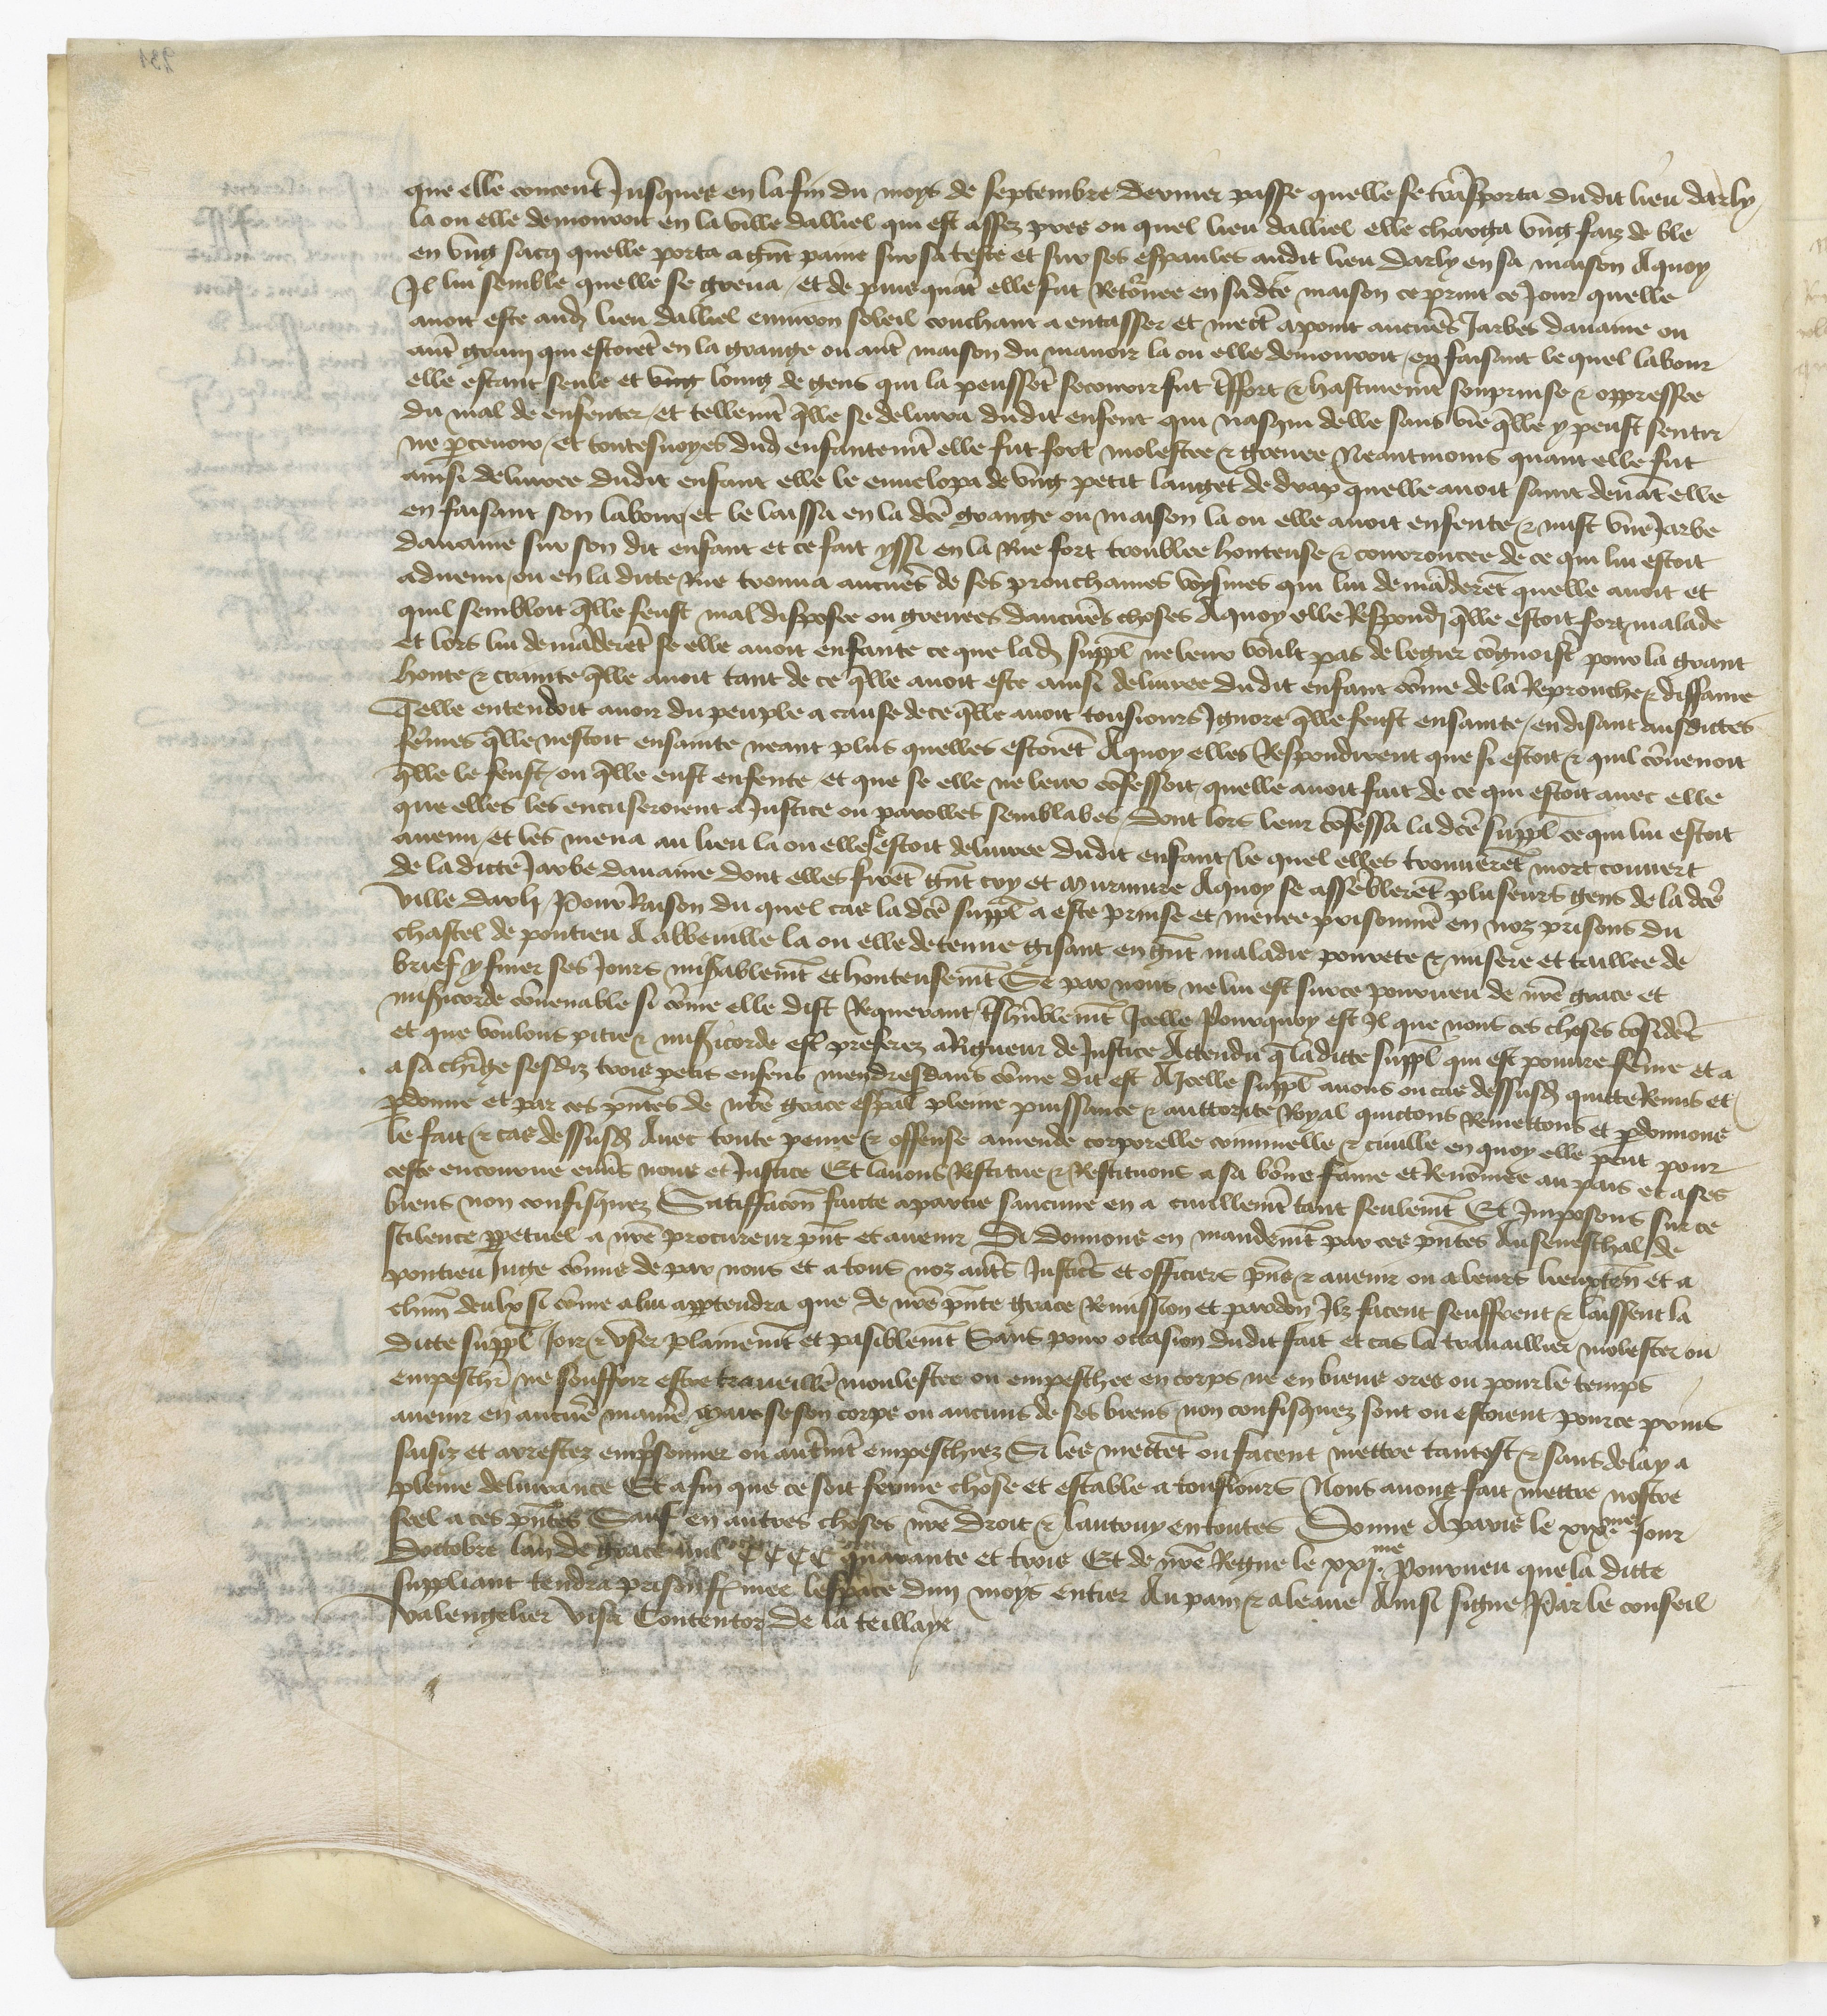 que elle conceut Jusques en la fin du moys de septembre dernier passe quelle se trãsporta du dit lieu darly
la ou elle demouroit en la ville dalliel qui est assez pres ou quel lieu dalliel elle charga vng faiz de ble
en vng sacq quelle porta a gñt paine sur sa teste et sur ses espaules audit lieu darly en sa maison Aquoy
Jl lui semble quelle se greua / et de puis quãt elle fut Retõrnee en sa dcẽ maison ce prim ce Jour quelle
auoit este aud lieu dalliel enuiron soleil couchant a entasser et mectr̃ a point aucunẽs Jarbes dauaine ou
autr̃ grain qui estoiẽt en la grange ou autr̃ maison du manoir la ou elle demouroit / en faisant le quel labour
elle estant seule et vng loing de gens qui la peussẽt secourir fut tr̃sfort & hastiuemẽt souprinse & oppressee
du mal de enfenter / et tellemẽt q̃lle se deliura dudit enfent qui nasqui delle sans vie q̃lle y peust sentir
ne p̱ceuoir / et toutesuoyes dud enfantemẽt elle fut fort molestee & greuee Neantmoins quant elle fut
ainsi deliuree dudit enfant elle le enuelopa de vng petit langet de drap quelle auoit saint deuãt elle
en faisant son labour / et le laissa en la dcẽ grange ou maison la ou elle auoit enfente & mist vne Jarbe
dauaine sur son dit enfant et ce fait yssi en la Rue fort troublee honteuse & courroucee de ce qui lui estoit
aduenu / ou en la ditte Rue trouua aucunẽs de ses prouchaines voysines qui lui demãderẽt quelle auoit et
quil sembloit q̃lle feust mal disposee ou greuees daucunẽs choses Aquoy elle Respondj q̃lle estoit fort malade
et lors lui demãderẽt se elle auoit enfante ce que lad suppl̃ ne leur voult pas de legier cõgnoistr̃ pour la grant
honte & crainte q̃lle auoit tant de ce q̃lle auoit este ainsi deliuree du dit enfant cõme de la Reprouche & diffame
q̃elle entendoit auoir du peuple a cause de ce q̃lle auoit tousiours Jgnore q̃lle feust ensainte / en disant ausdittes
fẽmes q̃lle nestoit ensainte neant plus quelles estoiẽt Aquoy elles Respondirent que si estoit & quil cõuenoit
q̃lle le feust / ou q̃lle eust enfente / et que se elle ne leur cõfessoit / quelle auoit fait de ce qui estoit auec elle
que elles les encuseroient a Justice ou parolles semblabes / dont lors leur cõfessa la dcẽ suppl̃ ce qui lui estoit
auenu / et les mena au lieu la ou elle sestoit deliuree dudit enfant / le quel elles trouuerẽt mort couuert
de la ditte Jarbe dauaine dont elles firẽt gñt cry et murmure Aquoy se assẽblerẽt pluseurs gens de la dcẽ
ville darli Pour Raison du quel cas la dcẽ suppl̃ a este prinse et menee prisonniẽ en noz prisons du
chastel de pontieu A abbeuille la ou elle detenue gisant en gñt maladie pourete & misere et taillee de
brief y finer ses Jours misãblemẽt et honteusemẽt Se par nous ne lui est sur ce pourueu de nrẽ grace et
misĩcorde cõuenable si cõme elle dist Requerant tr̃shũblemẽt Jcelle Pourquoy est Jl que nous ces choses cõsiderẽs
et que voulons pitie & misĩcorde estr̃ preferez a Rigueur de Justice Attendu q̃ la ditte suppl̃ qui est poure fẽme et a
a sa chr̃ge sesdiz trois petis enfens mendres dans cõme dit est A Jcelle suppl̃ auons ou cas dessusd quitte Remis et
p̱donne et par ces pñtes de nrẽ grace esp̃al pleine puissance & auttorite Royal quictons Remettons et p̱donnons
le fait & cas dessusd Auec toute peine & offense amende corporelle criminelle & ciuille en quoy elle peut pour
ceste encourue enuẽs nous et Justice Et lauons Restitue & Restituons a sa bõne fame et Renõmee au pais et a ses
biens non confisquez Satiffacoñ faicte a partie saucune en a ciuillemẽt tant seulemẽt Et Jmposons sur ce
scilence p̱petuel a nrẽ procureur pñt et auenir Si donnons en mandemẽt par ces pñtes Au seneschal de
pontieu Juge cõmis de par nous et a tous noz autr̃s Justic̃s et officiers pñs & auenir ou a leurs lieuxteñ et a
chũn deulx si cõme a lui app̱tendra que de nrẽ pñte grace Remission et pardon Jlz facent seuffrent & laissent la
ditte suppl̃ Joir & vser plainemẽt et pasiblemẽt Sans pour occasion dudit fait et cas la trauaillier molester ou
empeschr̃ ne souffrir estre traueillẽ moulestee ou empeschee en corps ne en biens ores ou pour le temps
auenir en aucunẽ maniẽ mais se son corps ou aucuns de ses biens non confisquez sont ou estoient pour ce prins
saisiz et arrestez emprisonner ou autr̃mẽt empeschiez Si les mettẽt ou facent mettre tantost & sans delay a
pleine deliurance Et afin que ce soit ferme chose et estable a tousiours Nous auons fait mettre nostre
seel a ces pñtes Sauf en autres choses nrẽ droit & lautruy en toutes Donne A paris le xixme Jour
doctobre lan de grace mil CCCC quarante et trois Et de nrẽ Regne le xxj.me Pourueu que la ditte
suppliant tendra prison fermee lespace dun moys entier Au pain & a leaue Ainsi signe Par le conseil
valengelier visa Contentor De la teillaye